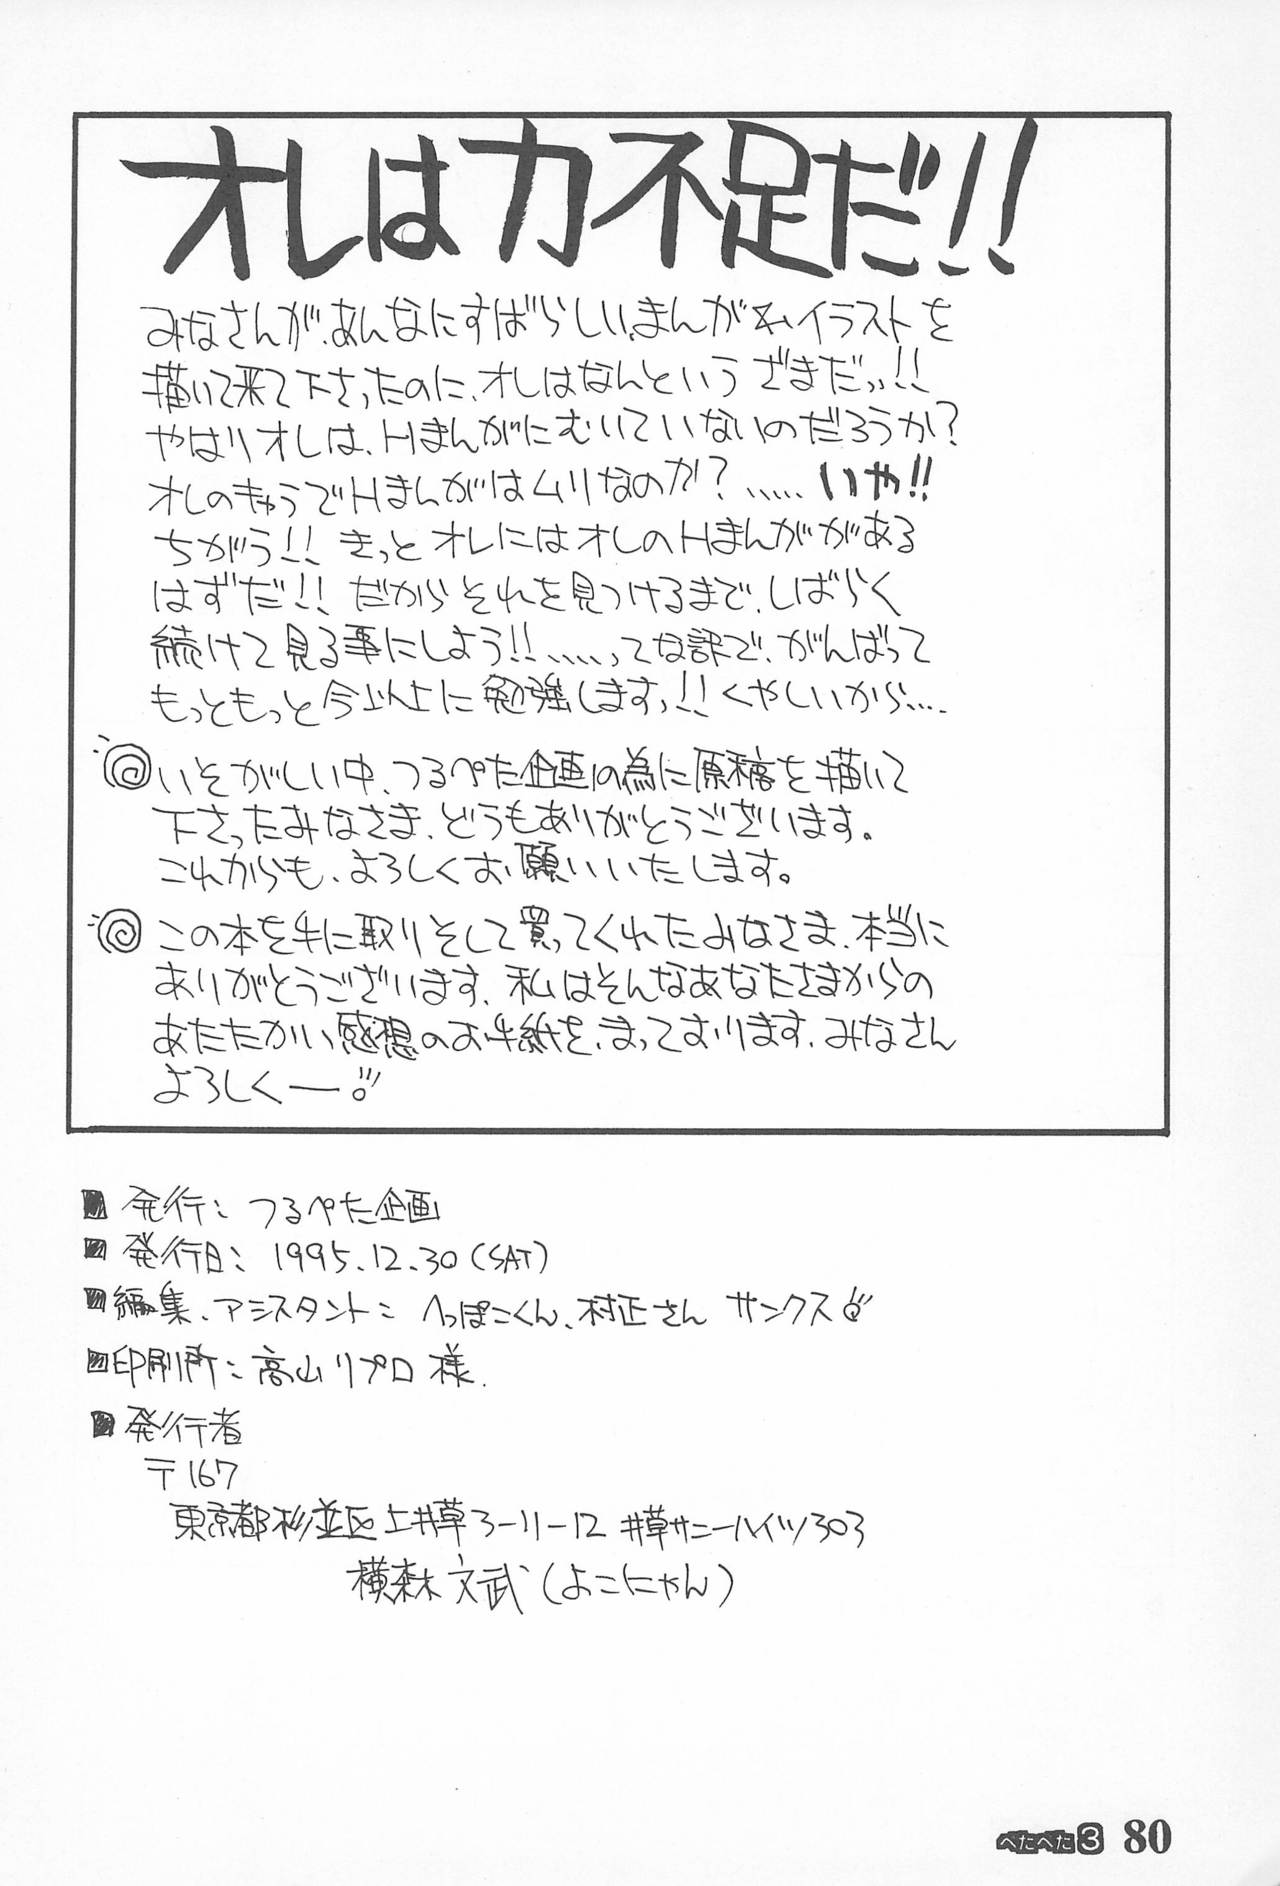 オレは力不足だ!!
みなさんが、あんなにすばらしい、まんが&イラストを
描いて来て下さったのに、オレはなんという ざまだッ!!
やはりオレは、Hまんがにむいていないのだろうか?
オレのきゅうでHまんがはムリなのか?…… いや!!
ちがう!! きっと オレにはオレのHまんががある
はずだ!! だから それを見つけるまで、しばらく
続けて見る事にしよう!! ……ってな訳で、がんばって
もっともっと今以上に勉強しますッ!! くやしいから….
いそがしい中、つるぺた企画の為に原稿を描いて
下さったみなさま、どうもありがとうございます。
これからも、よろしくお願いいたします。
この本を手に取りそして買ってくれたみなさま、本当に
ありがとうございます、私はそんなあなたさまからの
あたたかい感想のお手紙を、まっております、みなさん
よろしくー!!
■発行: つるぺた企画
■発行日: 1995.12.30(SAT)
■編集、アシスタント: へっぽこくん、村正さん サンクス!
■印刷所: 高山リプロ様.
■発行者
〒167
東京都杉並区上井草3-11-12 井草サニーハイツ303
横森文武(よこにゃん)
ぺたぺた3 80